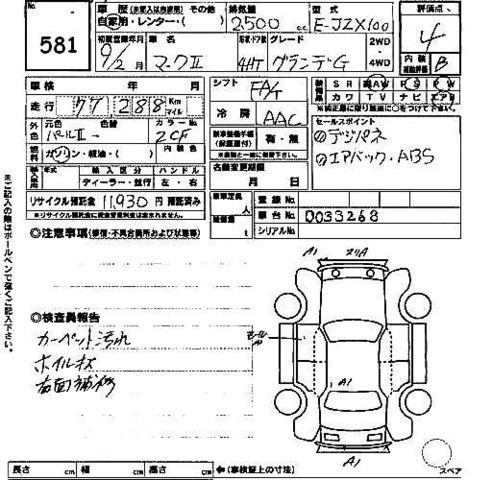 No.
581
車 歴 (主要入は自家用) その他
自家用・レンター・( )
排気量
2500 c.c.
型式
E-JZX100
評価点
4
初度登録年月
9/2月
車 名
マークⅡ
形状・ドア数
4HT
グレード
グランデG
2WD
4WD
内装
B
車 検 年 月
シフト
FAT
S R
A W
P S
P W
カワ
T V
ナビ
エアB
走 行
77,288 Km
マイル
冷 房
AAC
セールスポイント
①デジパネ
②エアバック・ABS
外色
元色
パールⅡ →
色替
カラーNo.
2CF
内装色
燃料
ガソリン・軽油・( )
有・無
輸入区分
ハンドル
ディーラー・並行
左・右
名義変更期限
月 日
リサイクル預託金 11,930 円 預託済み
乗車定員
人
積載量
登録No.
車台No. 0033268
シリアルNo.
※ご記入の際はボールペンで強くご記入下さい。
◎注意事項(修復・不具合箇所および状態等)
◎検査員報告
カーペット汚れ
ホイルキズ
右面補修
A1
A1
A1
スペア
長さ cm
幅 cm
高さ cm
(車検証上の寸法)